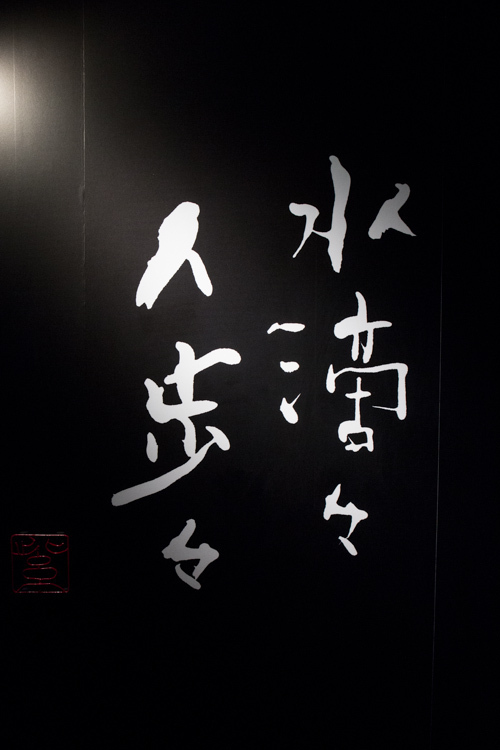 水滴々
人歩々